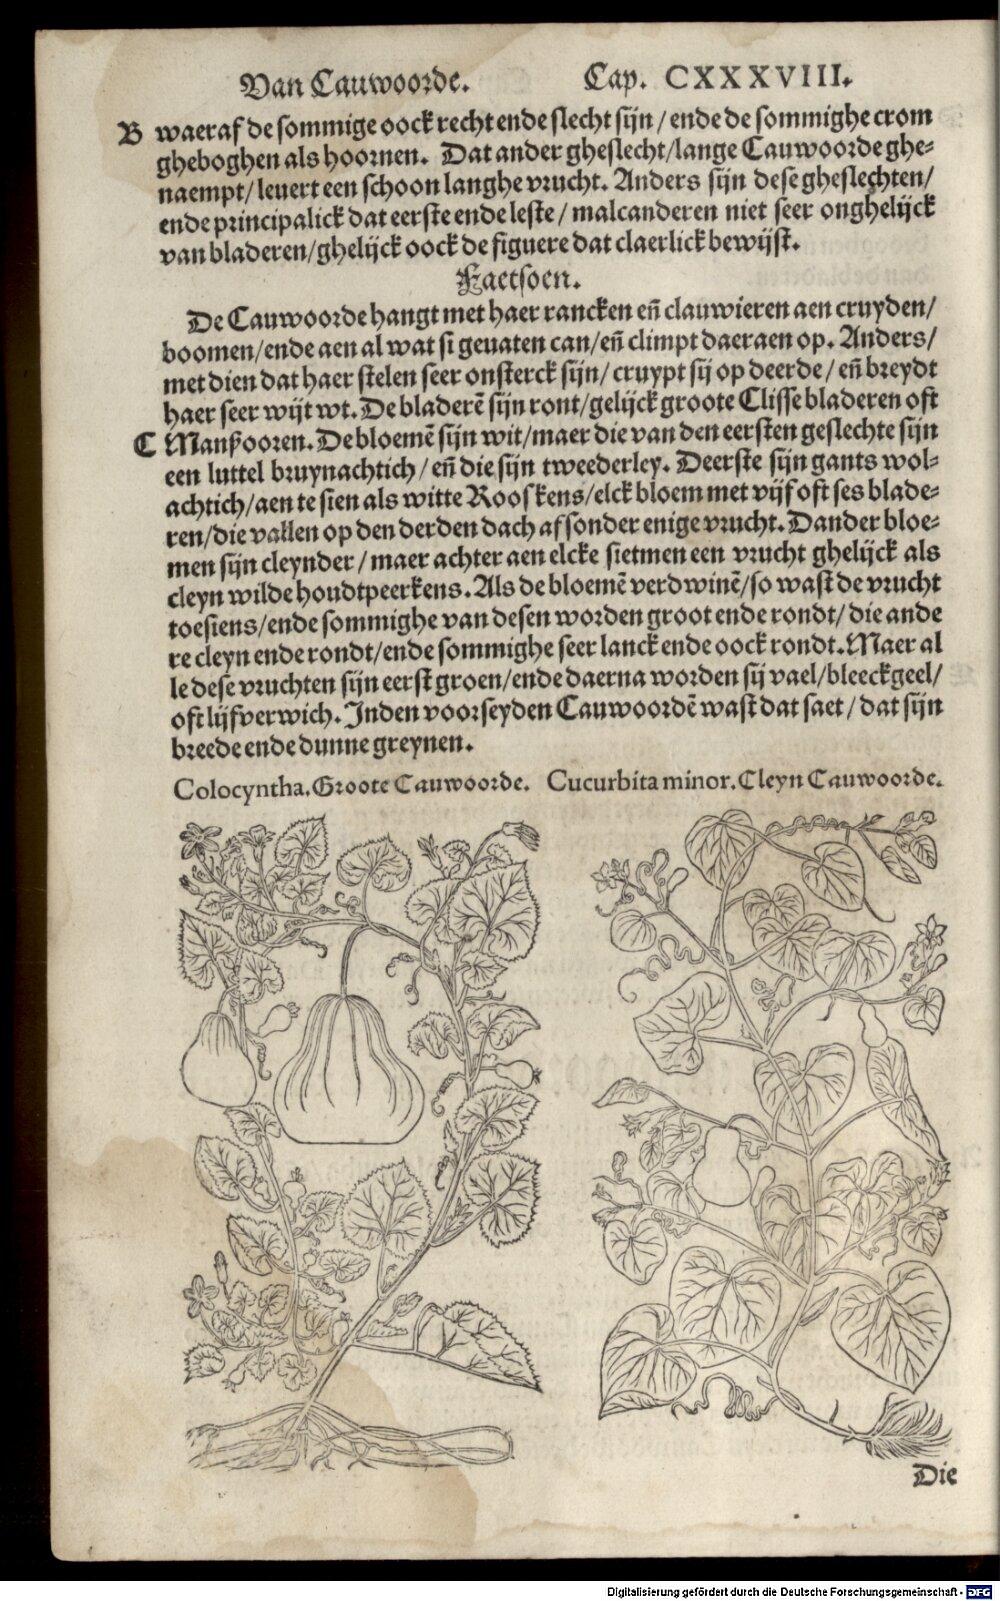 Van Cauwoorde. Cap. CXXXVIII.
B waeraf de sommige oock recht ende slecht sijn / ende de sommighe crom
gheboghen als hoornen. Dat ander gheslecht/lange Cauwoorde ghe-
naempt/leuert een schoon langhe vrucht. Anders sijn dese gheslechten/
ende principalick dat eerste ende leste / malcanderen niet seer onghelijck
van bladeren/ghelijck oock de figuere dat claerlick bewijst.
Faetsoen.
De Cauwoorde hangt met haer rancken eñ clauwieren aen cruyden/
boomen/ende aen al wat si geuaten can/eñ climpt daeraen op. Anders/
met dien dat haer stelen seer onsterck sijn/ cruypt sij op deerde / eñ breydt
haer seer wijt wt. De bladerē sijn ront/gelijck groote Clisse bladeren oft
C Manßooren. De bloemē sijn wit/maer die van den eersten geslechte sijn
een luttel bruynachtich / eñ die sijn tweederley. Deerste sijn gants wol-
achtich/aen te sien als witte Rooskens/elck bloem met vijf oft ses blade-
ren/die vallen op den derden dach af sonder enige vrucht. Dander bloe-
men sijn cleynder / maer achter aen elcke sietmen een vrucht ghelijck als
cleyn wilde houdtpeerkens. Als de bloemē verdwinē/so wast de vrucht
toesiens/ende sommighe van desen worden groot ende rondt/ die ande
re cleyn ende rondt/ende sommighe seer lanck ende oock rondt. Maer al
le dese vruchten sijn eerst groen/ende daerna worden sij vael/bleeckgeel/
oft lijfverwich. Inden voorseyden Cauwoordē wast dat saet / dat sijn
breede ende dunne greynen.
Colocyntha. Groote Cauwoorde. Cucurbita minor. Cleyn Cauwoorde.
Die
Digitalisierung gefördert durch die Deutsche Forschungsgemeinschaft - DFG